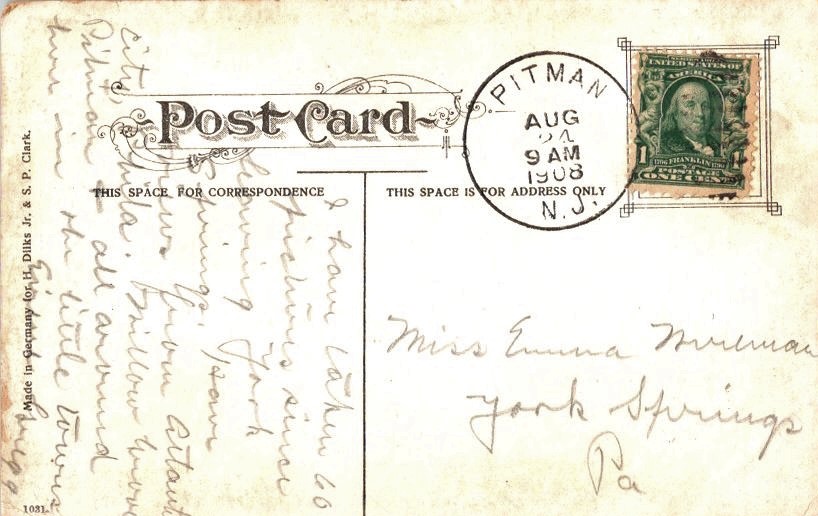 Post Card
THIS SPACE FOR CORRESPONDENCE
THIS SPACE IS FOR ADDRESS ONLY
PITMAN
AUG
24
9 AM
1908
N.J.
SERIES 1902
UNITED STATES OF
AMERICA
1
1706 FRANKLIN 1790
POSTAGE
ONE CENT
I have taken 60
pictures since
leaving York
Springs, some
views from Atlantic
City, Phila. Willow Grove
Pitman & all around
here in the little towns
Miss Emma Wireman
York Springs
Pa
Made in Germany for H. Dilks Jr. & S. P. Clark.
1031.